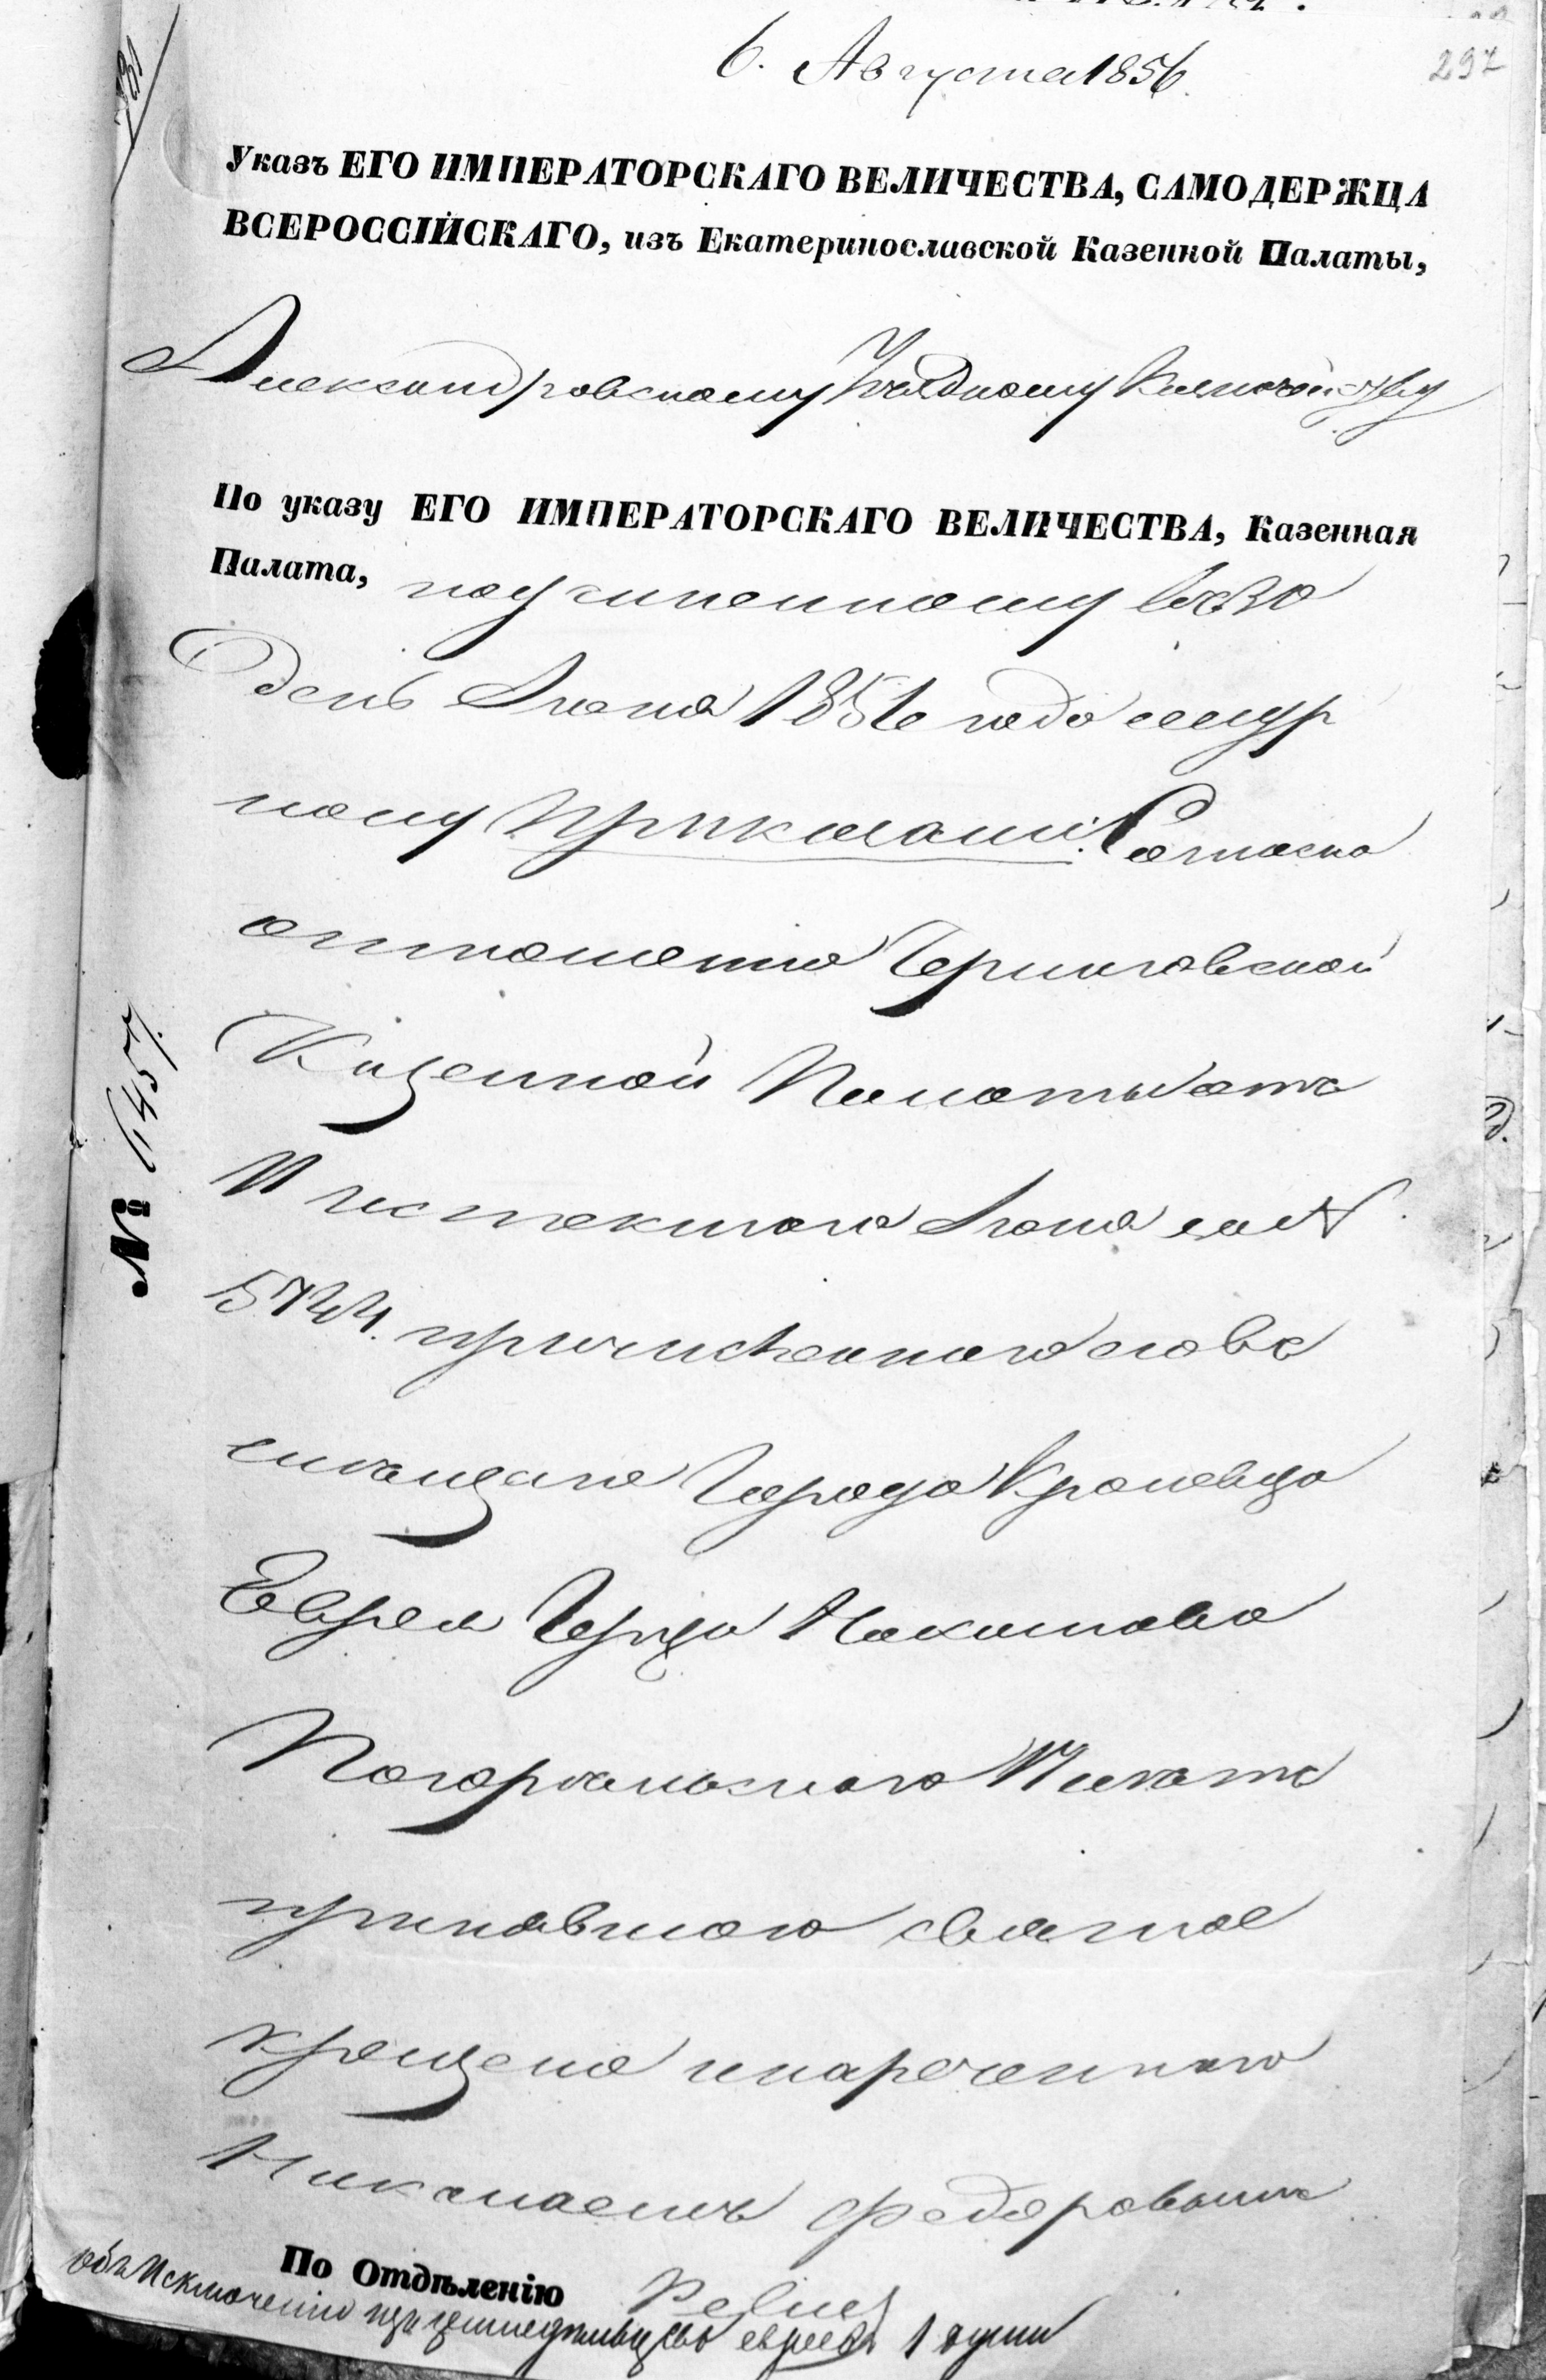 6. Августа 1856.
297
Указъ ЕГО ИМПЕРАТОРСКАГО ВЕЛИЧЕСТВА, САМОДЕРЖЦА
ВСЕРОССІЙСКАГО, изъ Екатеринославской Казенной Палаты,
Александровскому Уѣздному Казначейству
По указу ЕГО ИМПЕРАТОРСКАГО ВЕЛИЧЕСТВА, Казенная
Палата, по учиненному въ 30
день Іюля 1856 года журналь
ному Приказали: Согласно
отношенію Черниговской
Казенной Палаты отъ
11 истекшаго Іюля за №
5724. причисленнаго
города Кролевца
Еврея Герца
Погорѣльскаго
принявшаго святое
крещеніе и нареченнаго
Николаемъ Федоровымъ
По Отдѣленію
объ Исключеніи еврея 1 души
№ 11457.